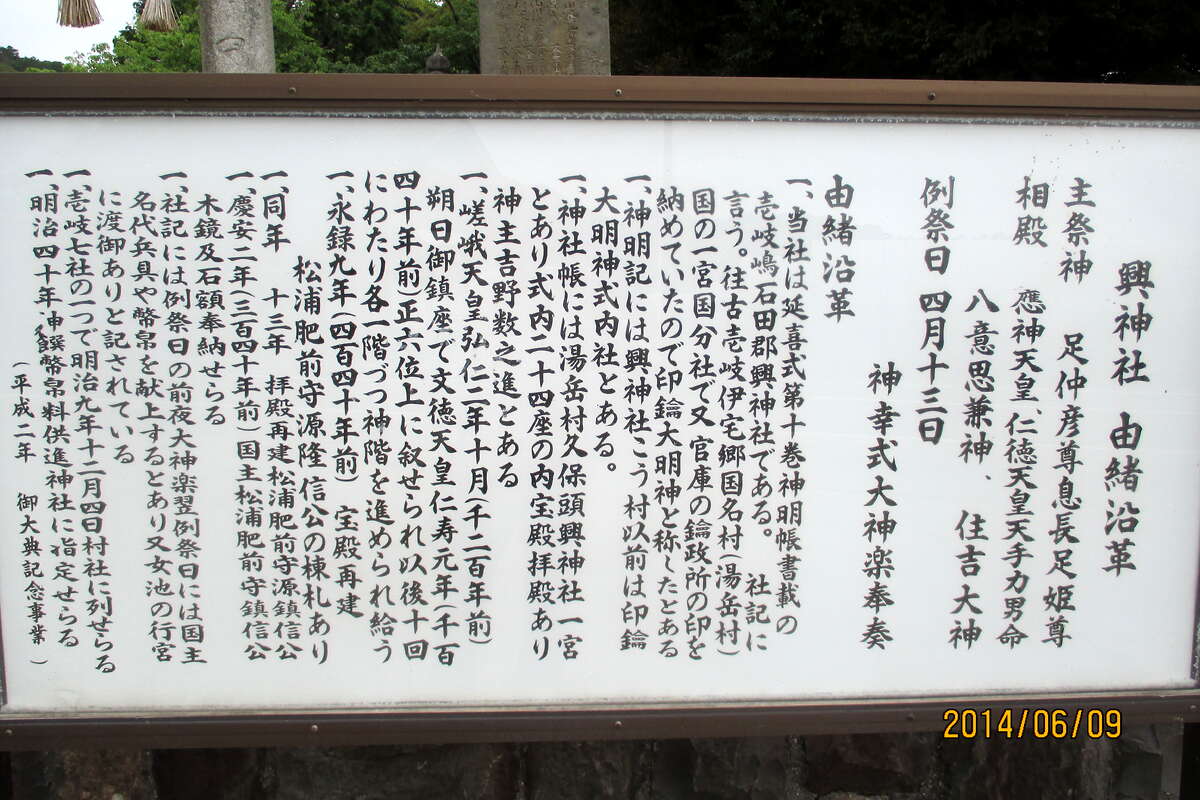 興神社　由緒沿革
主祭神　足仲彦尊息長足姫尊
相殿　應神天皇、仁徳天皇天手力男命
八意思兼神、住吉大神
例祭日　四月十三日
神幸式大神楽奉奏
由緒沿革
一、当社は延喜式第十巻神明帳書載の
壱岐嶋石田郡興神社である。　社記に
言う。往古壱岐伊宅郷国名村(湯岳村)
国の一宮国分社で又官庫の鑰政所の印を
納めていたので印鑰大明神と称したとある
一、神明記には興神社こう村以前は印鑰
大明神式内社とある。
一、神社帳には湯岳村久保頭興神社一宮
とあり式内二十四座の内宝殿拝殿あり
神主吉野数之進とある
一、嵯峨天皇弘仁二年十月(千二百年前)
朔日御鎮座で文徳天皇仁寿元年(千百
四十年前)正六位上に叙せられ以後十回
にわたり各一階づつ神階を進められ給う
一、永録九年(四百四十年前)　宝殿再建
松浦肥前守源隆信公の棟札あり
一、同年　十三年　拝殿再建松浦肥前守源鎮信公
一、慶安二年(三百四十年前)国主松浦肥前守鎮信公
木鏡及石額奉納せらる
一、社記には例祭日の前夜大神楽翌例祭日には国主
名代兵具や幣帛を献上するとあり又女池の行宮
に渡御ありと記されている
一、壱岐七社の一つで明治九年十二月四日村社に列せらる
一、明治四十年神饌幣帛料供進神社に指定せらる
(平成二年　御大典記念事業)
2014/06/09